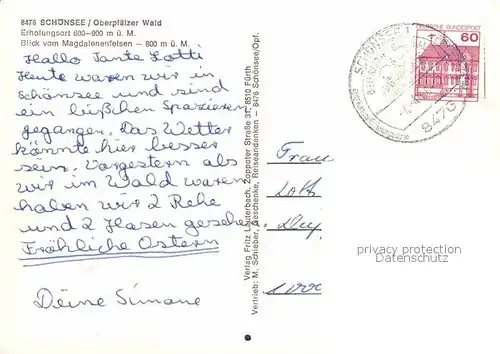 8476 SCHÖNSEE / Oberpfälzer Wald
Erholungsort 600—900 m ü. M.
Blick vom Magdalenenfelsen — 800 m ü. M.
Hallo Tante Lotti
Heute waren wir in
Schönsee und sind
ein bißchen Spazieren
gegangen. Das Wetter
könnte hier besser
sein. Vorgestern als
wir im Wald waren
haben wir 2 Rehe
und 2 Hasen gesehen.
Fröhliche Ostern
Deine Simone
Verlag Fritz Lauterbach, Zoppoter Straße 37, 8510 Fürth
Vertrieb: M. Schieber, Geschenke, Reiseandenken — 8476 Schönsee/Opf.
DEUTSCHE BUNDESPOST
60
SCHÖNSEE
8476
Frau
privacy protection
Datenschutz